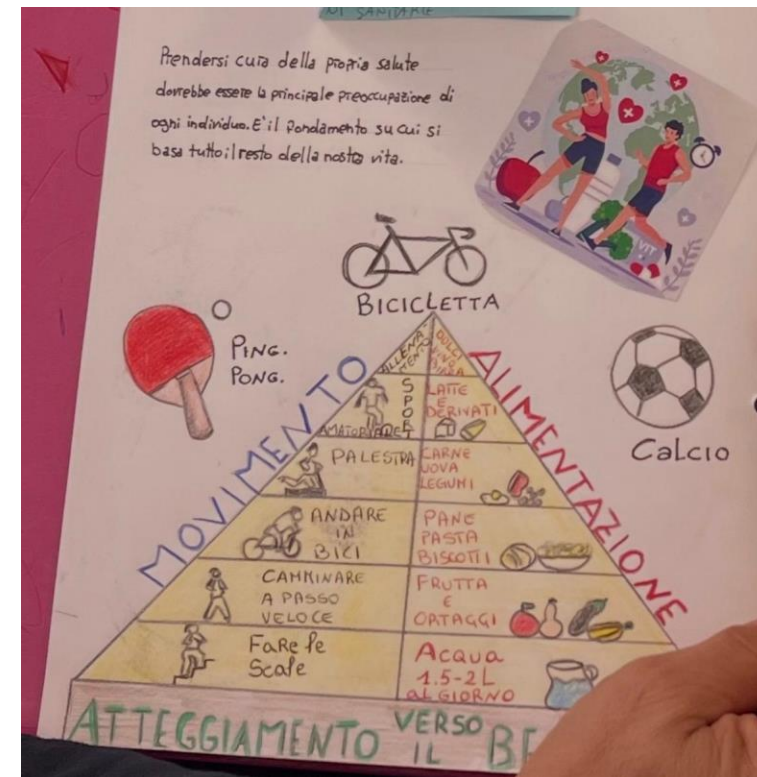 NI SANITARIE
Prendersi cura della propria salute
dovrebbe essere la principale preoccupazione di
ogni individuo. E' il fondamento su cui si
basa tutto il resto della nostra vita.
VIT
BICICLETTA
PING.
PONG.
CALCIO
MOVIMENTO
ALIMENTAZIONE
ALLENA-
MENTO
DOLCI
VINO
BIRRA
SPORT
AMATORIALE
LATTE
E
DERIVATI
PALESTRA
CARNE
UOVA
LEGUMI
ANDARE
IN
BICI
PANE
PASTA
BISCOTTI
CAMMINARE
A PASSO
VELOCE
FRUTTA
E
ORTAGGI
FARE le
Scale
Acqua
1.5-2L
al GIORNO
ATTEGGIAMENTO VERSO
IL